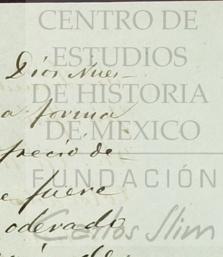 CENTRO DE
ESTUDIOS
Dios Nues-
DE HISTORIA
a forma
DE MEXICO
precio de
FUNDACIÓN
e fuere
Carlos Slim
oderado